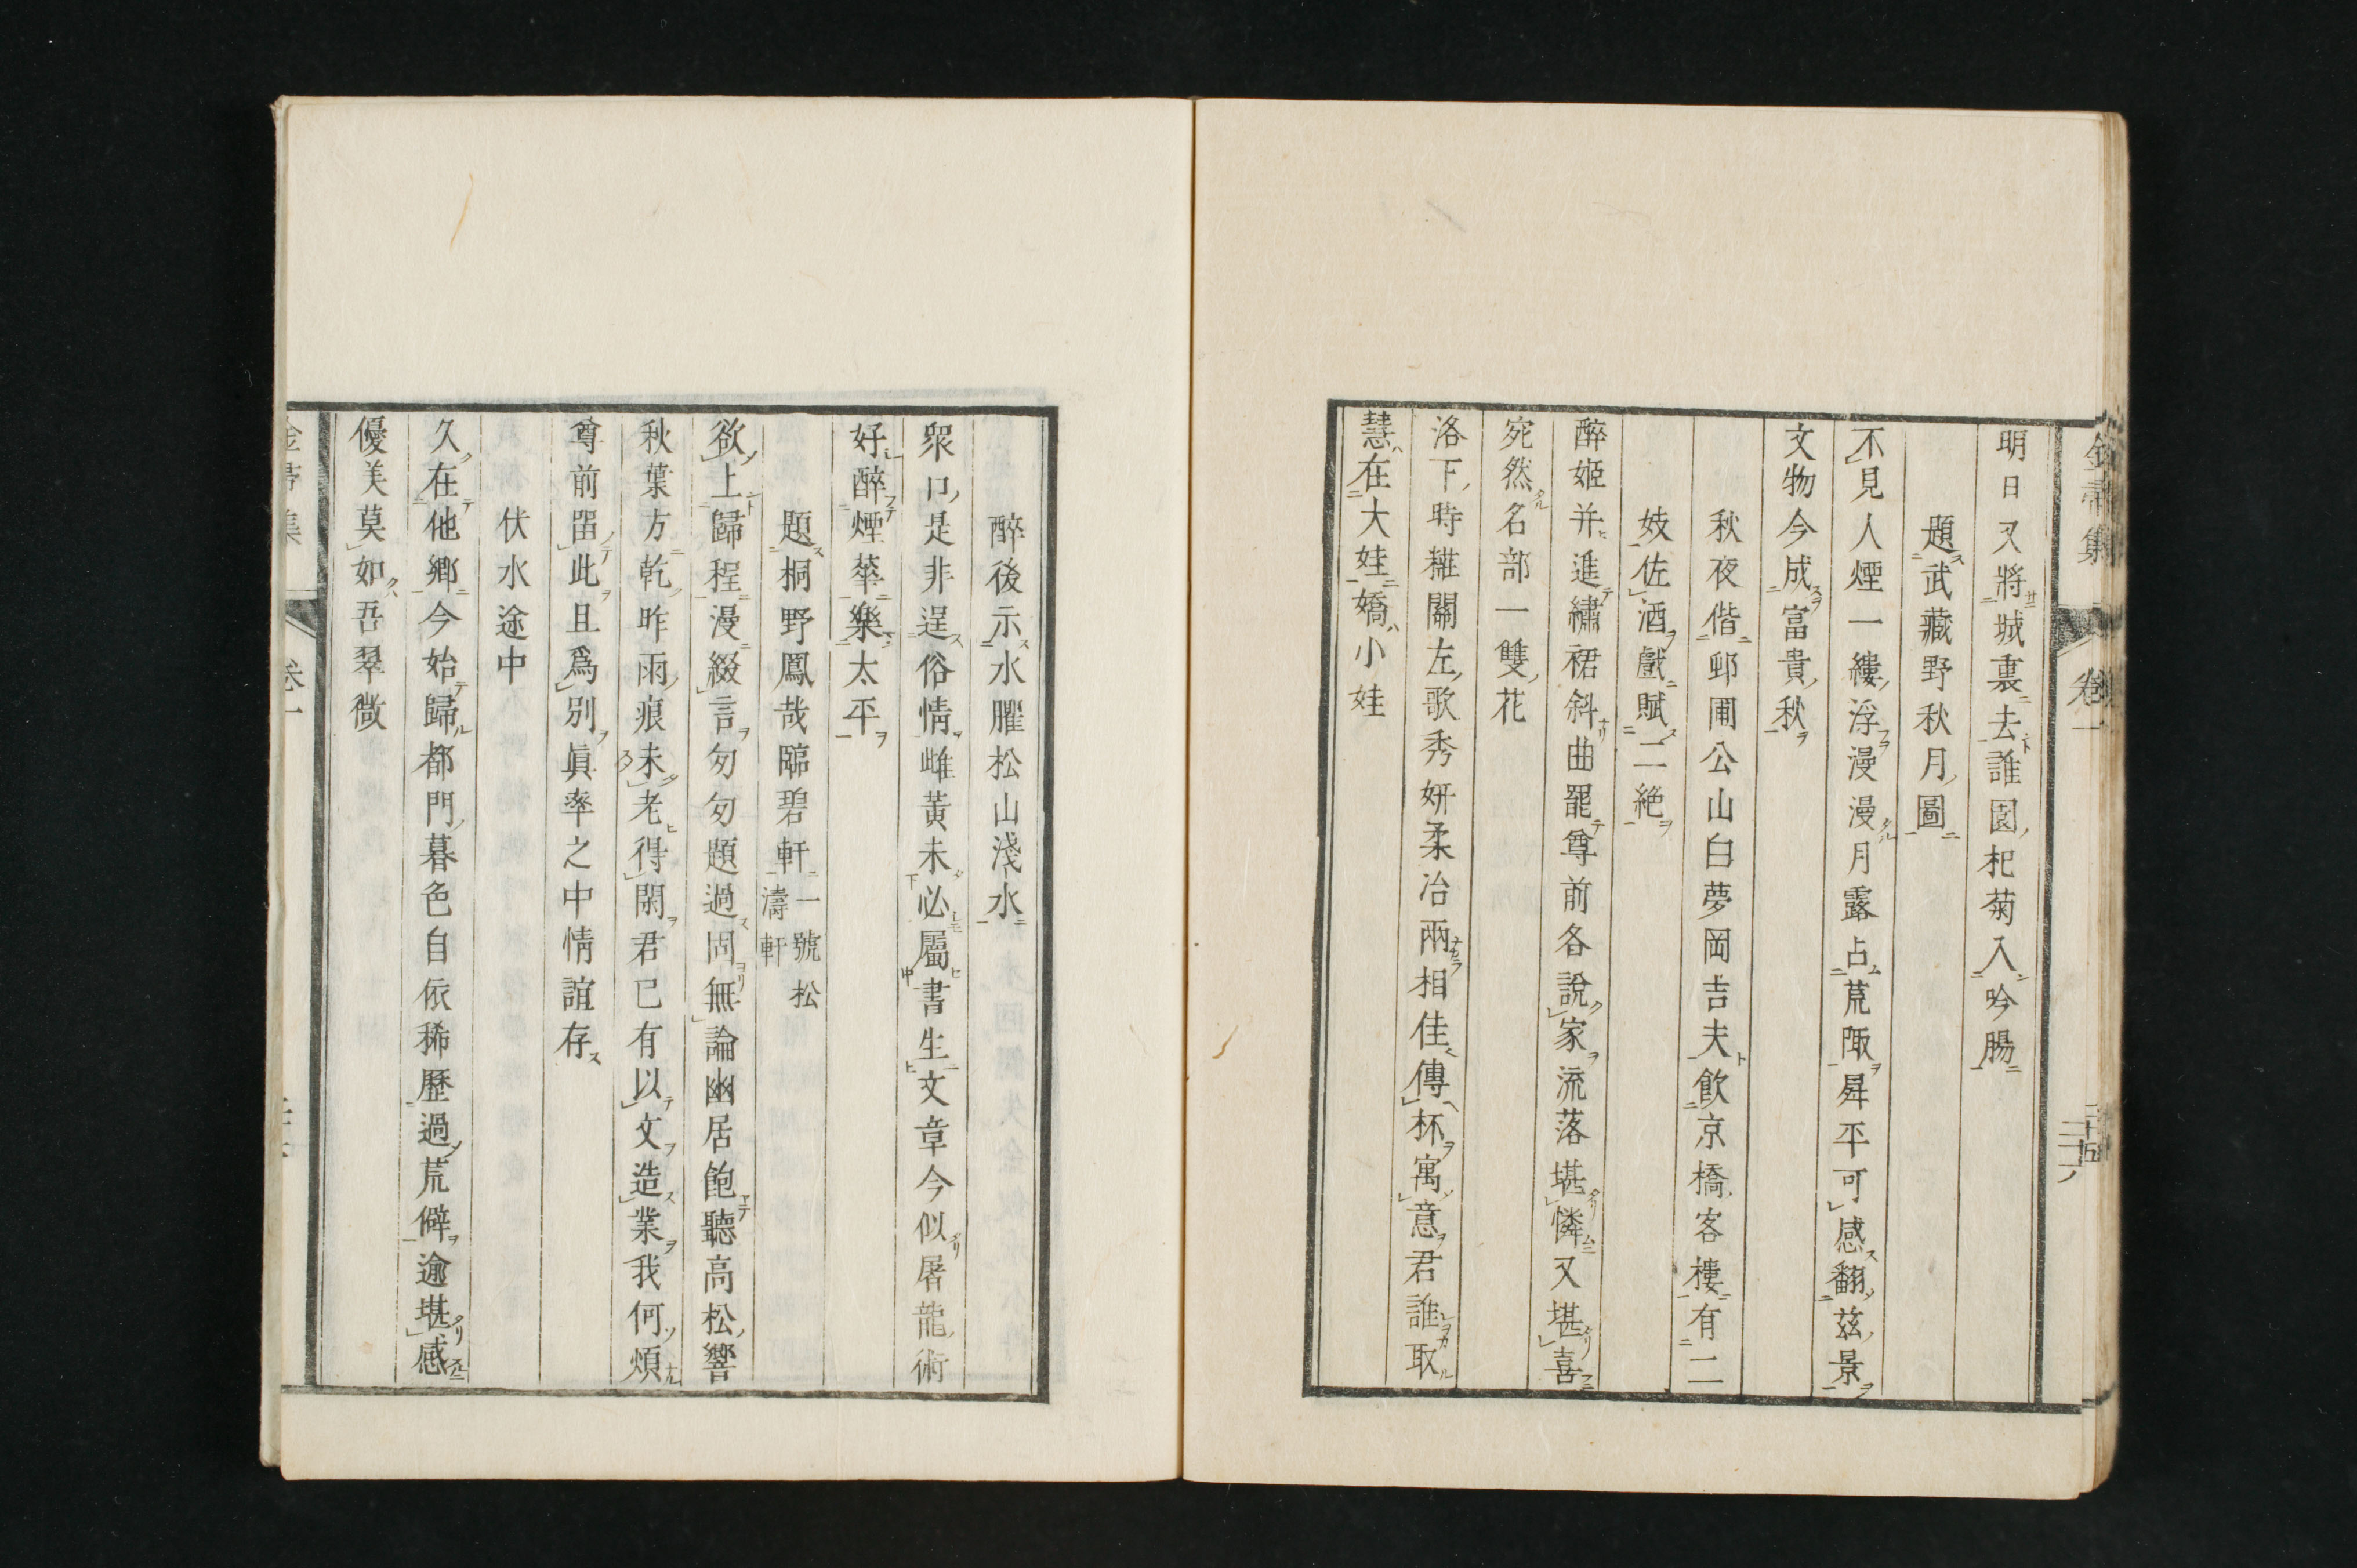 明日又將城裏去誰園杞菊入吟腸
題武藏野秋月圖
不見人煙一縷浮漫漫月露占荒陬昇平可感翻茲景
文物今成富貴秋
秋夜偕邨圃公山白夢岡吉夫飮京橋客樓有二
妓佐酒戲賦二絶
醉姬并進繡裙斜曲罷尊前各說家流落堪憐又堪喜
宛然名部一雙花
洛下時糚關左歌秀妍柔冶兩相佳傳杯寓意君誰取
慧在大娃嬌小娃
卷一
醉後示水臞松山淺水
衆口是非逞俗情雌黃未必屬書生文章今似屠龍術
好醉煙華樂太平
題桐野鳳哉臨碧軒一號松濤軒
欲上歸程漫綴言匆匆題過固無論幽居飽聽高松響
秋葉方乾昨雨痕未老得閑君已有以文造業我何煩
尊前留此且爲別眞率之中情誼存
伏水途中
久在他鄉今始歸都門暮色自依稀歷過荒僻逾堪感
優美莫如吾翠微
卷一